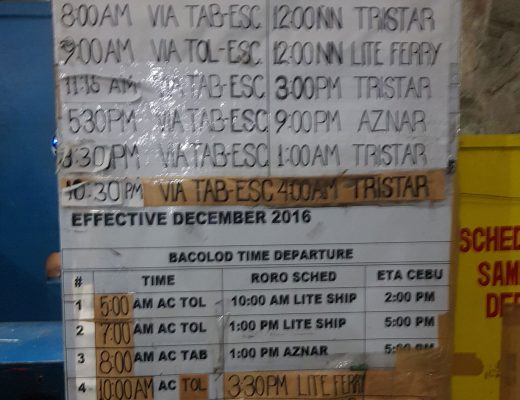 8:00AM VIA TAB-ESC 12:00NN TRISTAR
9:00AM VIA TOL-ESC 12:00NN LITE FERRY
11:15 AM VIA TAB-ESC 3:00PM TRISTAR
5:30PM VIA TAB-ESC 9:00PM AZNAR
8:30PM VIA TAB-ESC 1:00AM TRISTAR
10:30PM VIA TAB-ESC 4:00AM TRISTAR
EFFECTIVE DECEMBER 2016
BACOLOD TIME DEPARTURE
# TIME RORO SCHED ETA CEBU
1 5:00 AM AC TOL 10:00 AM LITE SHIP 2:00 PM
2 7:00 AM AC TOL 1:00 PM LITE SHIP 5:00 PM
3 8:00 AM AC TAB 1:00 PM AZNAR 5:00 PM
4 10:00AM AC TOL 3:30PM LITE FERRY
SCHED
SAM
DE